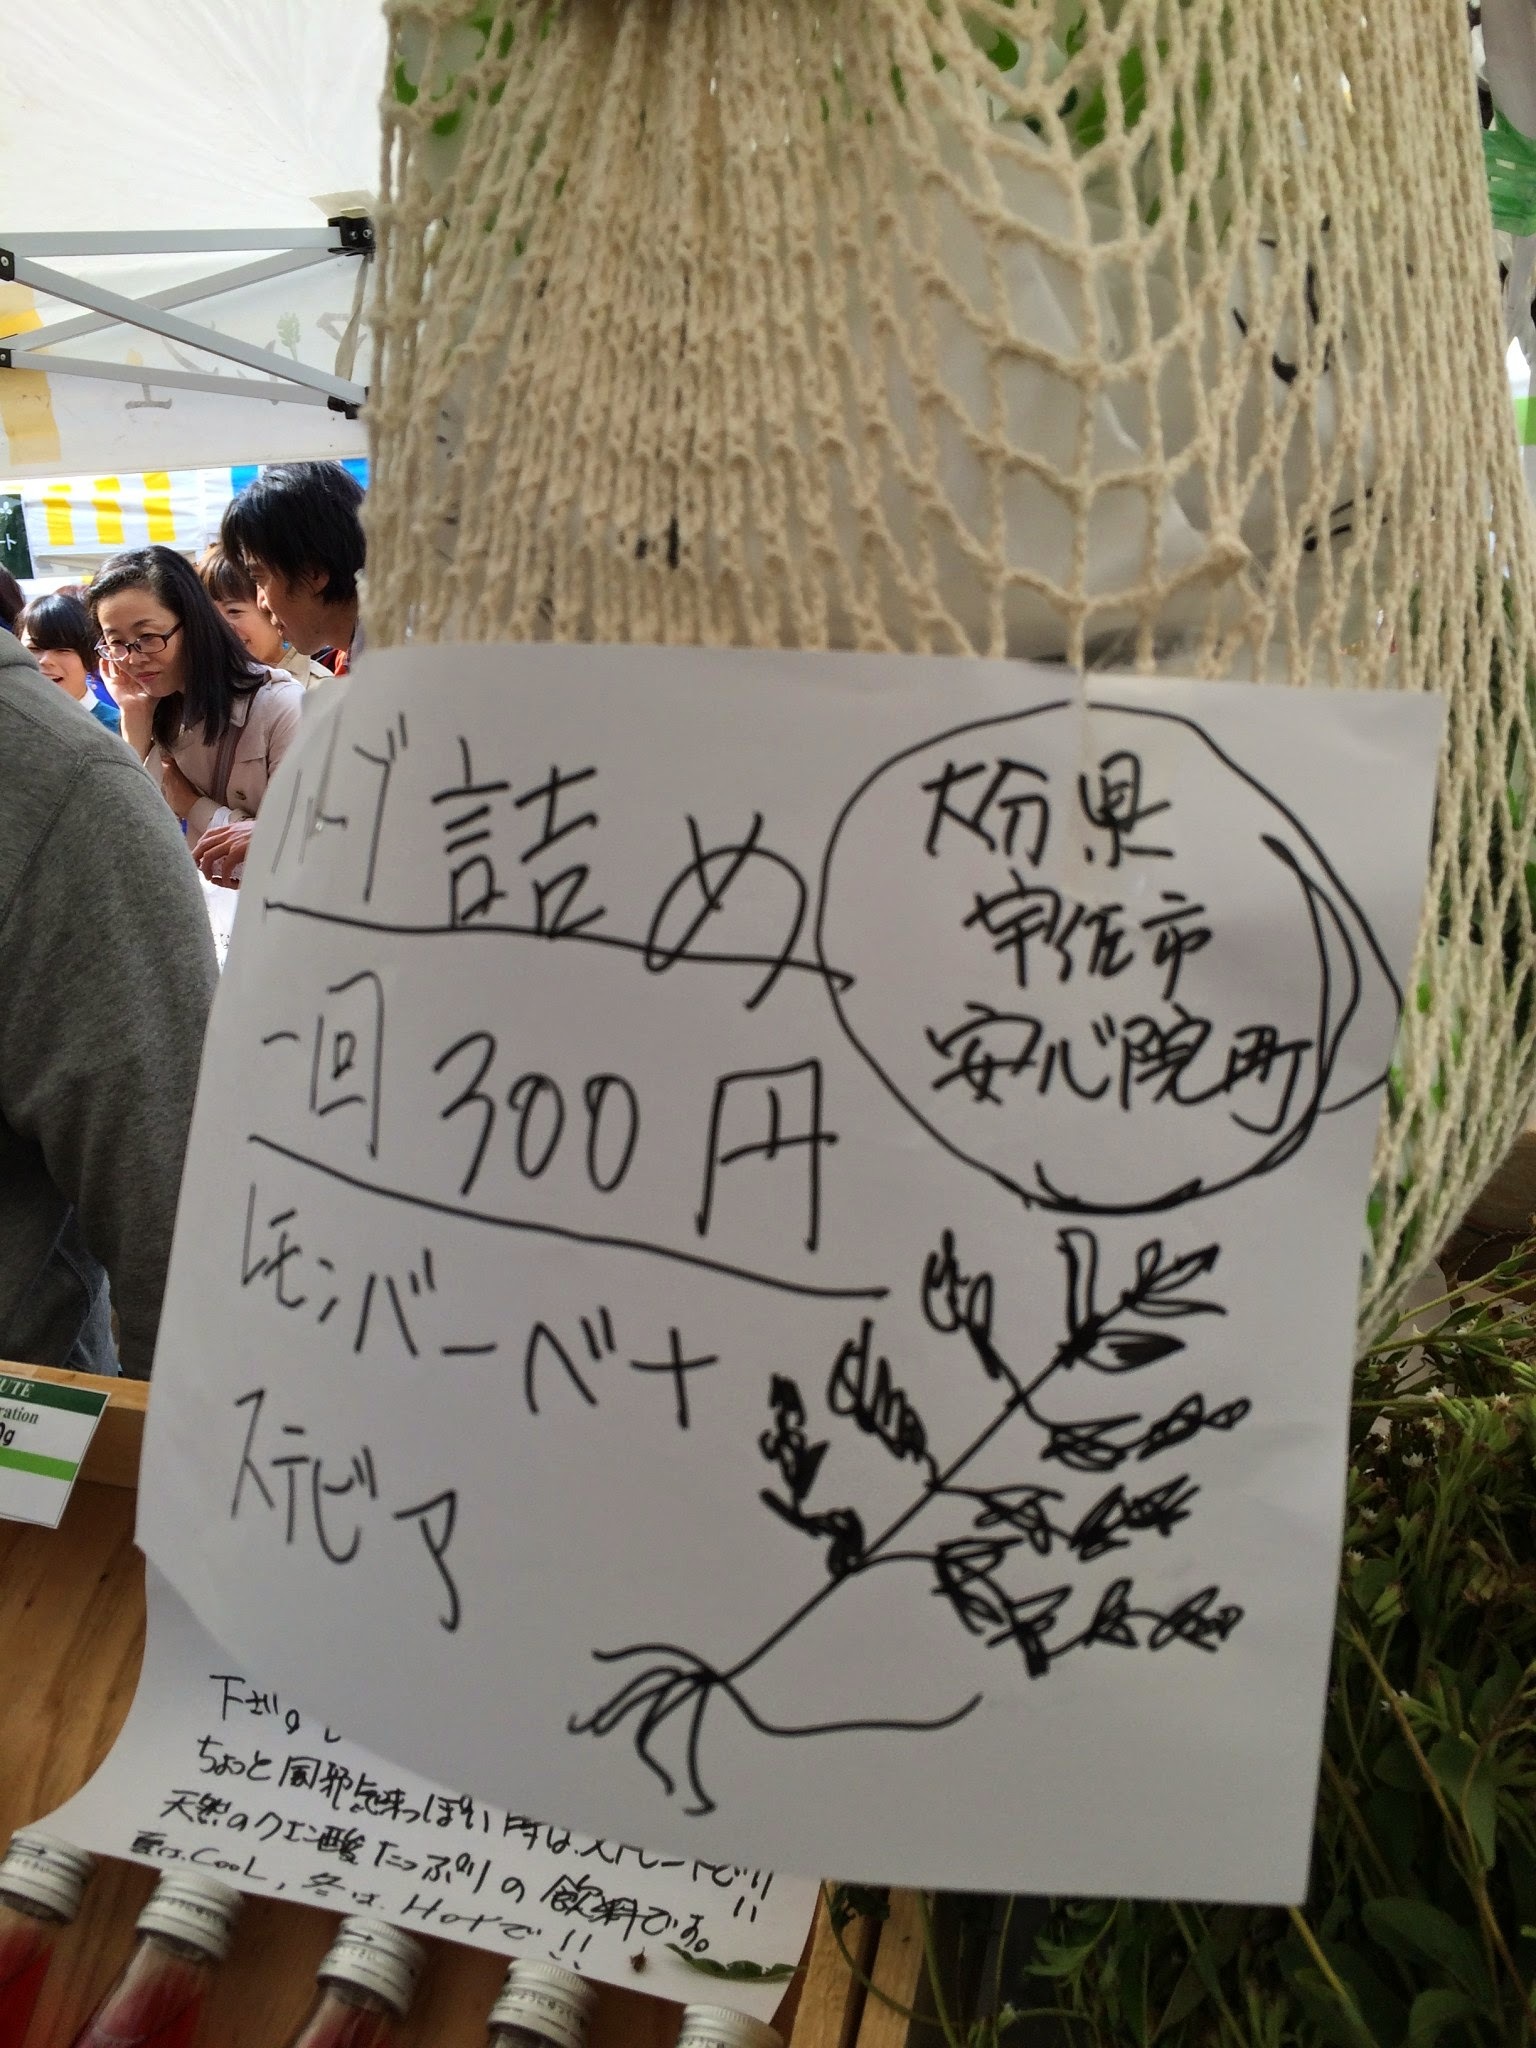 詰め
一回 300円
レモンバーベナ
ステビア
大分県
宇佐市
安心院町
ちょっと風邪気味っぽい時は、ストレートで!!
天然のクエン酸たっぷりの飲料です。
夏は、COOL, 冬は、HOTで!!
UTE
ration
0g